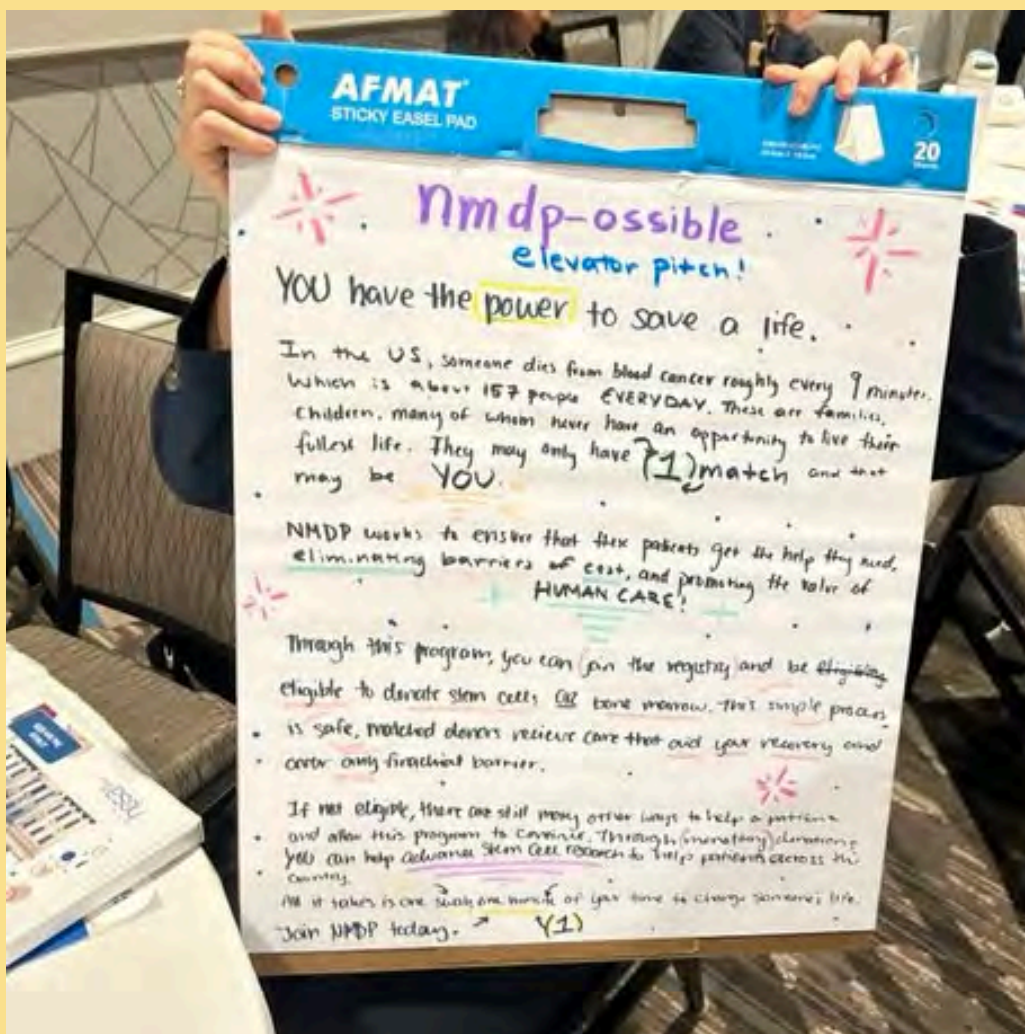 AFMAT
STICKY EASEL PAD
20
nmdp-ossible
elevator pitch!
YOU have the power to save a life.
In the US, someone dies from blood cancer roughly every 9 minutes.
Which is about 157 people EVERYDAY. These are families,
children, many of whom never have an opportunity to live their
fullest life. They may only have (1) match and that
may be YOU.
NMDP works to ensure that these patients get the help they need,
eliminating barriers of cost, and promoting the value of
HUMAN CARE!
Through this program, you can join the registry and be
eligible to donate stem cells OR bone marrow. This simple process
is safe, matched donors recieve care that aid your recovery and
cover any financial barrier.
If not eligible, there are still many other ways to help a patient
and allow this program to continue. Through (monetary) donations
you can help advance stem cell research to help patients across the
country.
All it takes is one swab, one minute of your time to change someone's life.
Join NMDP today. (1)